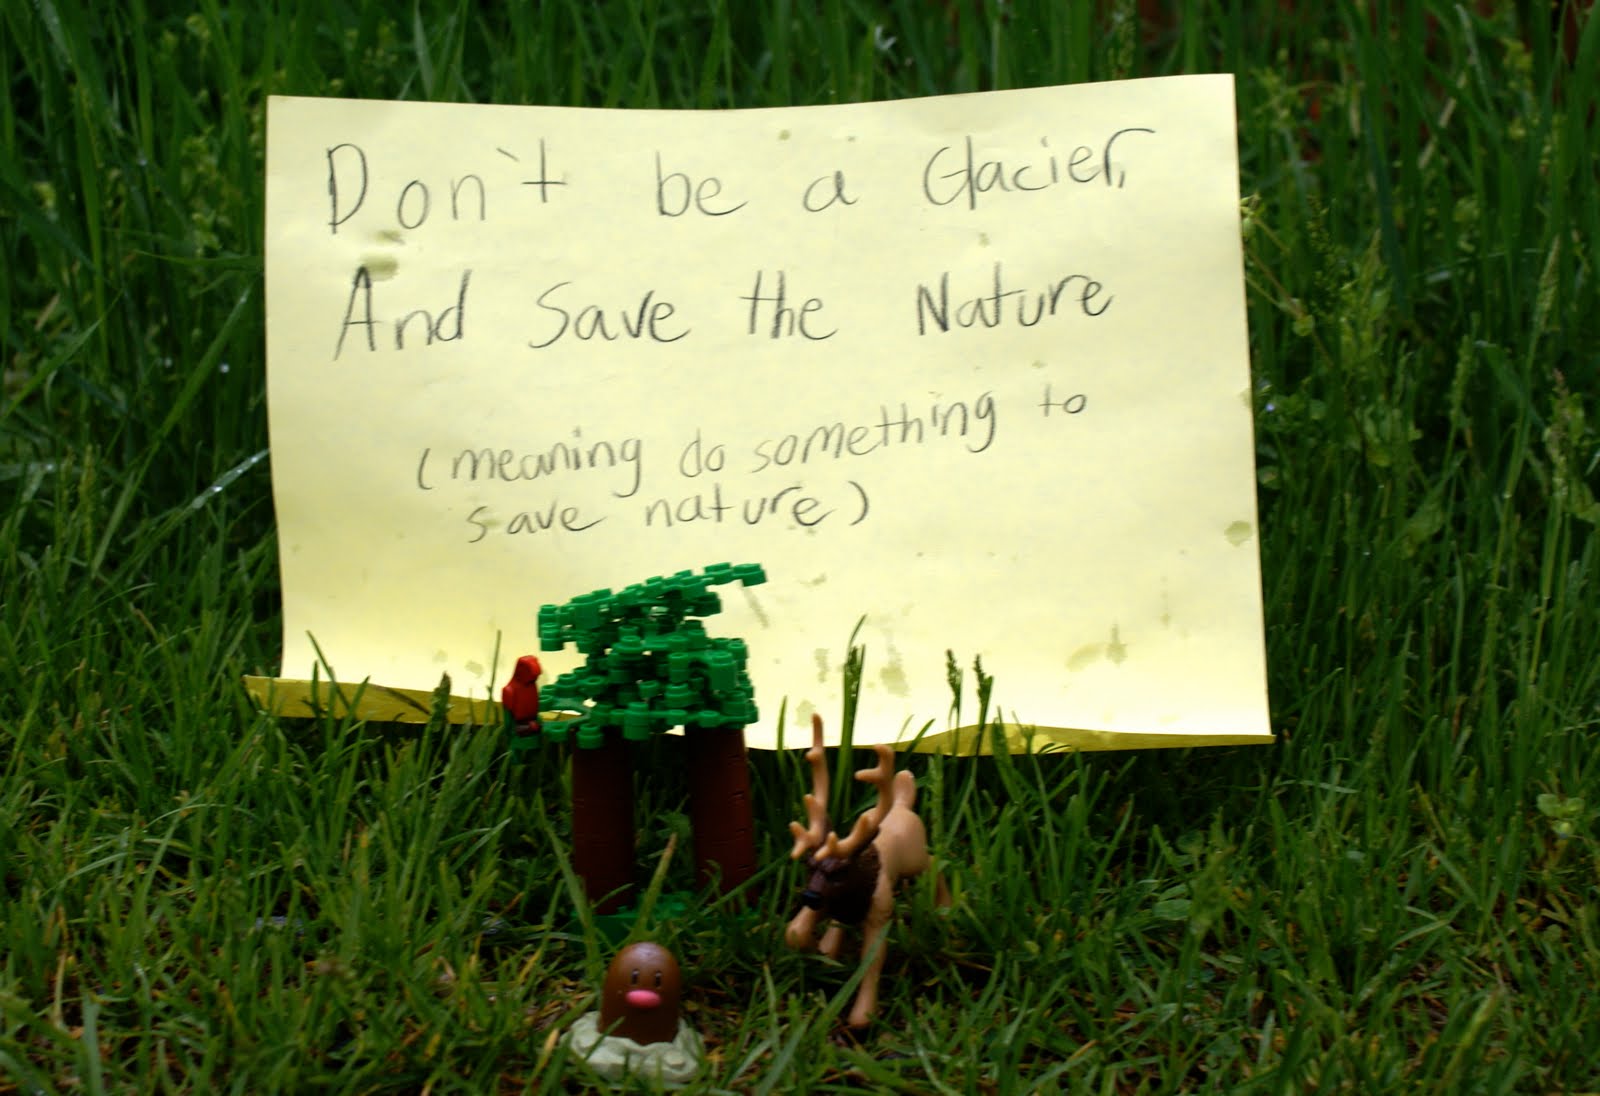 Don't be a Glacier,
And Save the Nature
(meaning do something to
save nature)